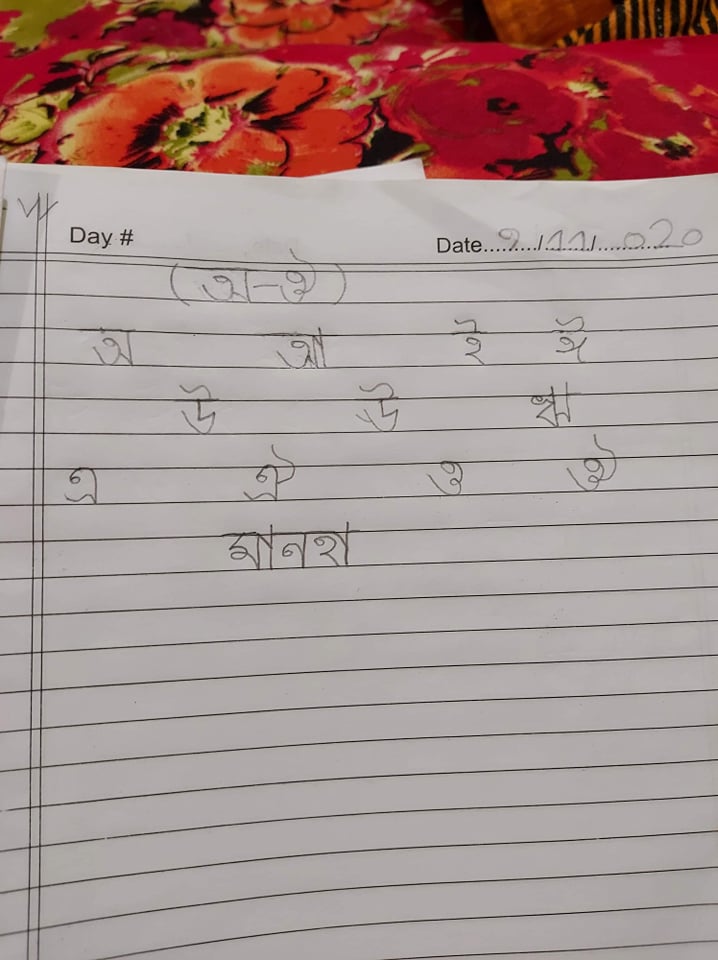 Day #
Date 9/11/020
(অ-ঔ)
অ আ ই ঈ
উ ঊ ঋ
এ ঐ ও ঔ
মানহা